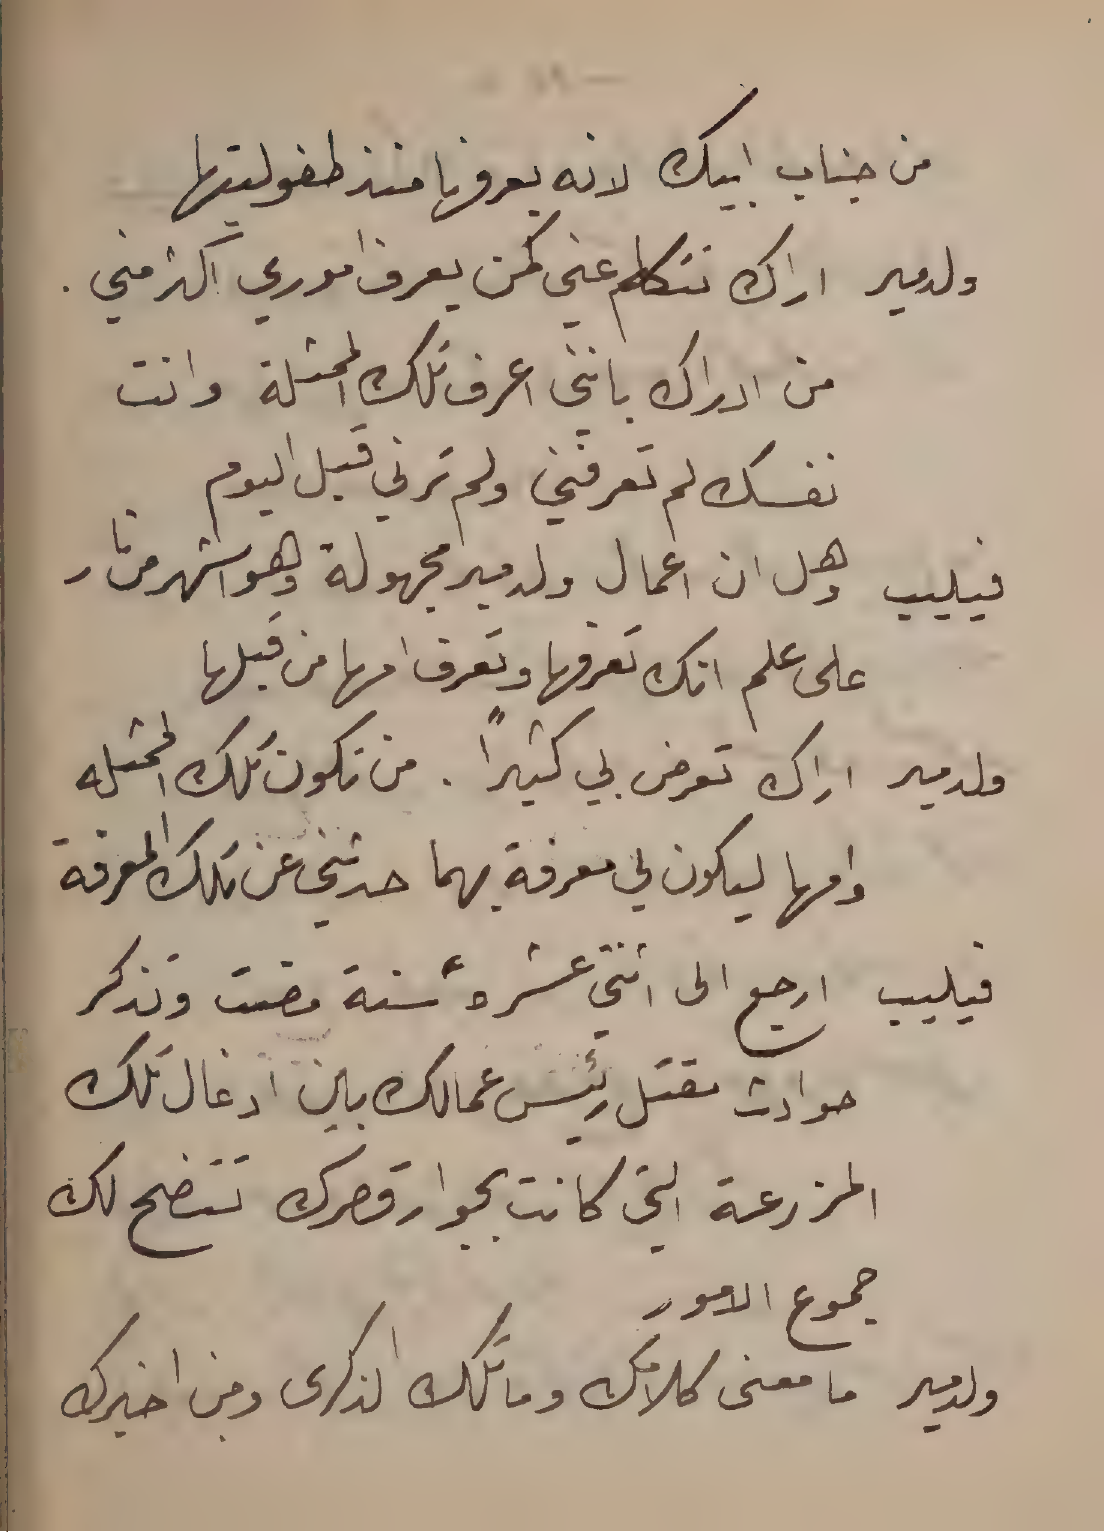 من جناب ابيك لانه يعرفها منذ طفوليتها
ولدمير اراك تتكلم عني كمن يعرف اموري اكثر مني .
من ادراك بانني اعرف تلك الممثلة وانت
نفسك لم تعرفني ولم ترني قبل اليوم
فيليب وهل ان اعمال ولدمير مجهولة وهو اشهر من نار
على علم انك تعرفها وتعرف امها من قبلها
ولدمير اراك تعرض بي كثيراً . من تكون تلك الممثله
وامها ليكون لي معرفة بهما حدثني عن تلك المعرفة
فيليب ارجع الى اثنتي عشرة سنة مضت وتذكر
حوادث مقتل رئيس عمالك باين ادغال تلك
المزرعة التي كانت بجوار قصرك تتضح لك
جموع الامور
ولدمير ما معنى كلامك وما تلك الذكرى ومن اخبرك